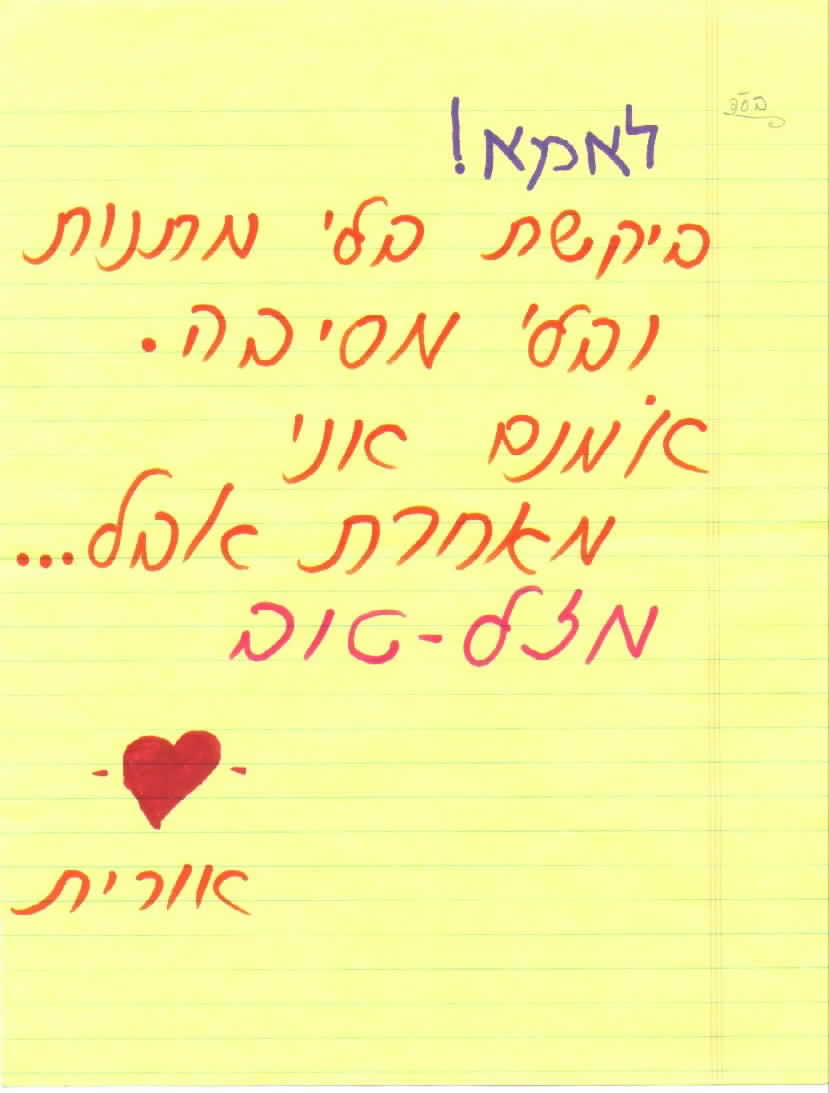 בס"ד
לאמא!
ביקשת בלי מתנות
ובלי מסיבה.
אומנם אני
מאחרת אבל...
מזל-טוב
אורית